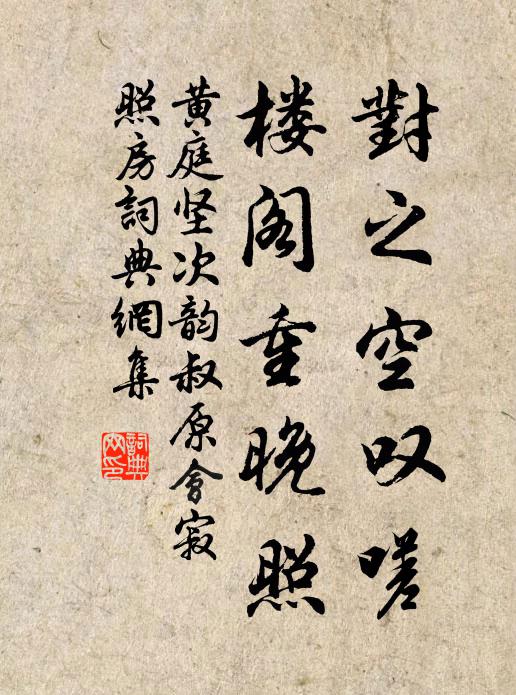 對之空叹嗟
楼阁重晚照
黄庭坚次韵叔原會寂
照房詞典網集
詞典
网印